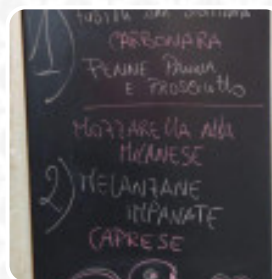 1)
CARBONARA
PENNE PANNA
E PROSCIUTTO
MOZZARELLA ALLA
MILANESE
2) MELANZANE
IMPANATE
CAPRESE